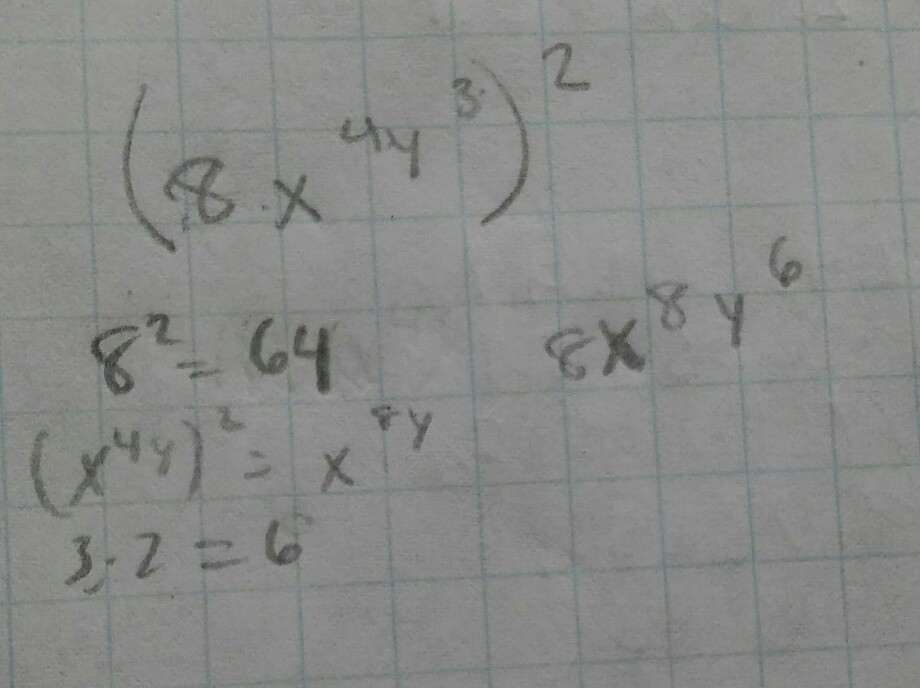 (8·x⁴ʸ³)²
8² = 64    8x⁸y⁶
(x⁴ʸ)² = x⁸ʸ
3·2 = 6